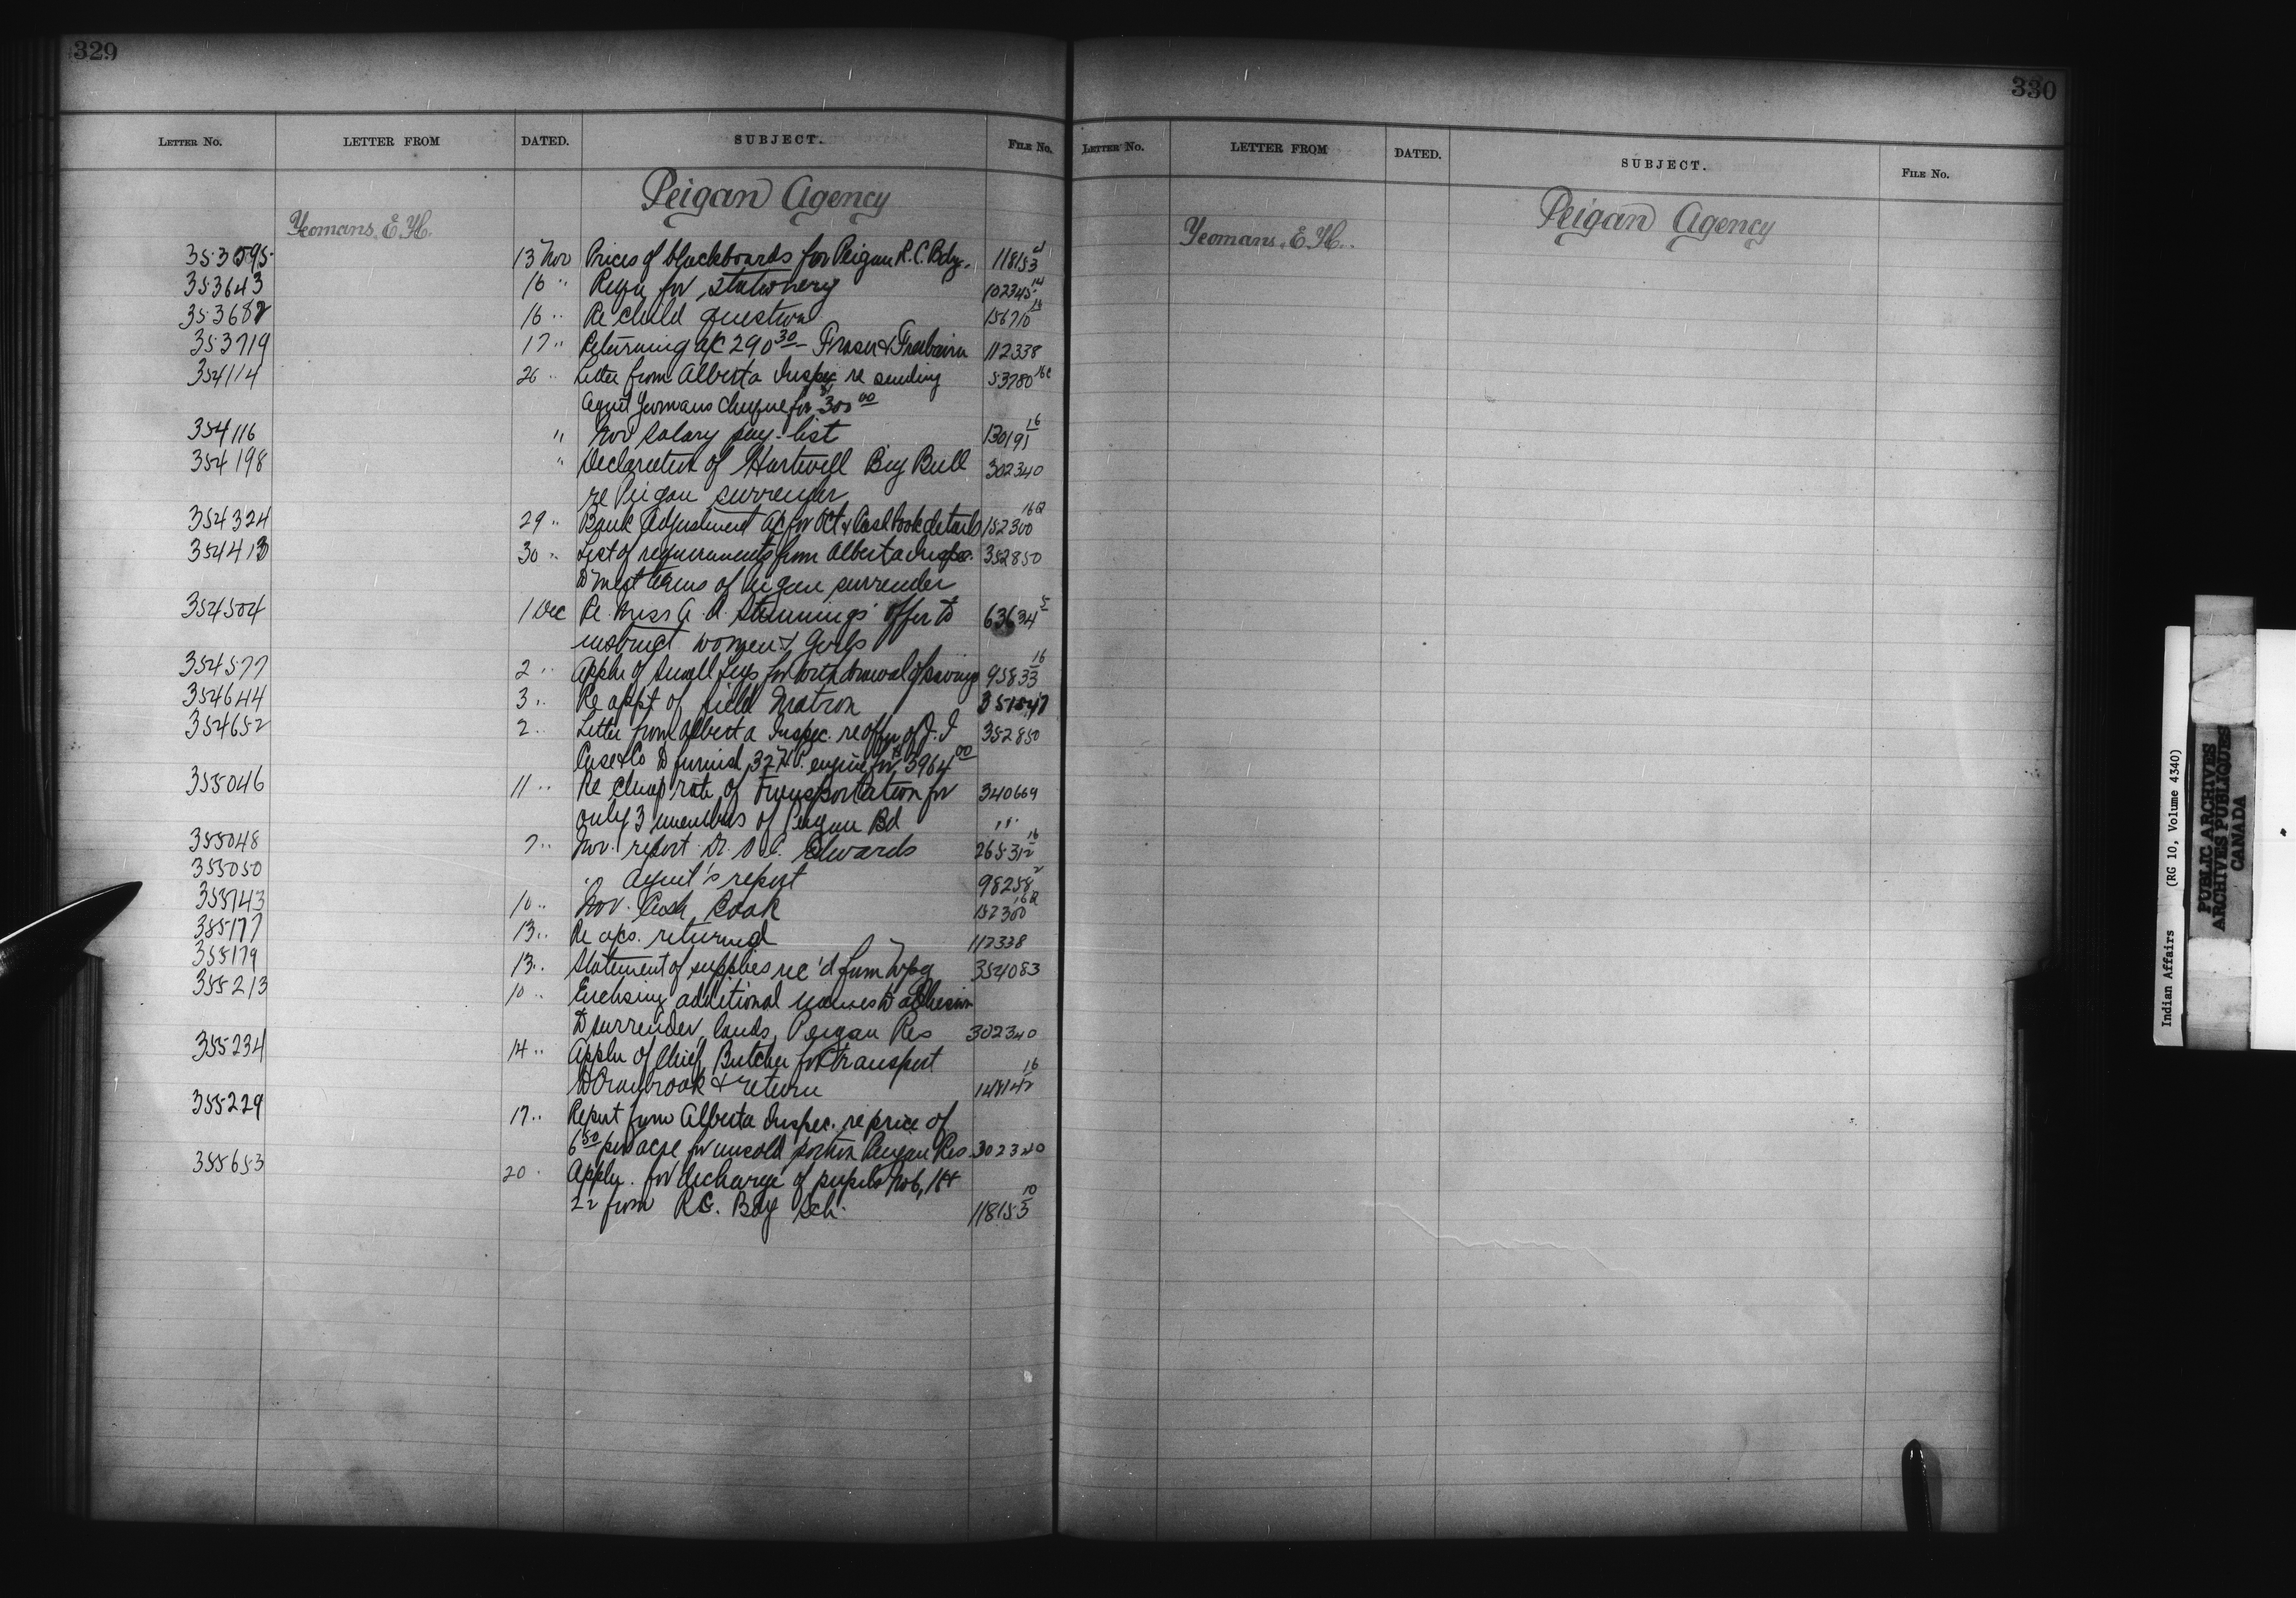 329
LETTER No. LETTER FROM DATED. SUBJECT. FILE No.
Peigan Agency
Yeomans, E. H.
353595 13 Nov Prices of blackboards for Peigan R.C. Bdg. 118153 4
353643 16 " Requ for stationery 102345 14
353682 16 " Re child question 156710
353719 17 " Returning a/c 290 30 Fraser & 112338
354114 26 " Letter from Alberta Inspec re sending 53780 16c
Agent Yeomans cheque for 300 00
354116 " Nov salary pay-list 130191 16
354198 " Declaration of Hartwell Big Bull 302340
re Peigan surrender
354324 29 " Bank Adjustment a/c for Oct & Cash book details 152300 16a
354413 30 " List of requirements from Alberta Inspec. 352850
to meet terms of Peigan surrender
354504 1 Dec Re Miss A. A. offer to 63634 5
instruct women & girls
354577 2 " Appln of Small Legs for withdrawal of savings 95833 16
354644 3 " Re appt of field Matron 351547
354652 2 " Letter from Alberta Inspec. re offer of J. I 352850
Case & Co to furnish 32 H.P. engine for 3964 00
355046 11 " Re cheap rate of transportation for 340669
only 3 members of Peigan Bd "
355048 7 " Nov. report Dr. O. C. Edwards 265312 16
355050 " Agent's report 98258 2
355143 10 " Nov. Cash Book 152300 16a
355177 13 " Re a/cs. returned 112338
355179 13 " Statement of supplies rec'd from Wpg 354083
355213 10 " Enclosing additional names to adhesion
to surrender, lands, Peigan Res 302340
355234 14 " Appln of Chief Butcher for transport
to Cranbrook & return 148142 16
355229 17 " Report from Alberta Inspec. re price of
6 50 per acre for unsold portion Peigan Res 302340
355653 20 " Appln. for discharge of pupils No 6, 18 &
22 from R.C. Bdg Sch. 118153 10
330
LETTER No. LETTER FROM DATED. SUBJECT. FILE No.
Peigan Agency
Yeomans, E. H.
Indian Affairs (RG 10, Volume 4340)
PUBLIC ARCHIVES
ARCHIVES PUBLIQUES
CANADA